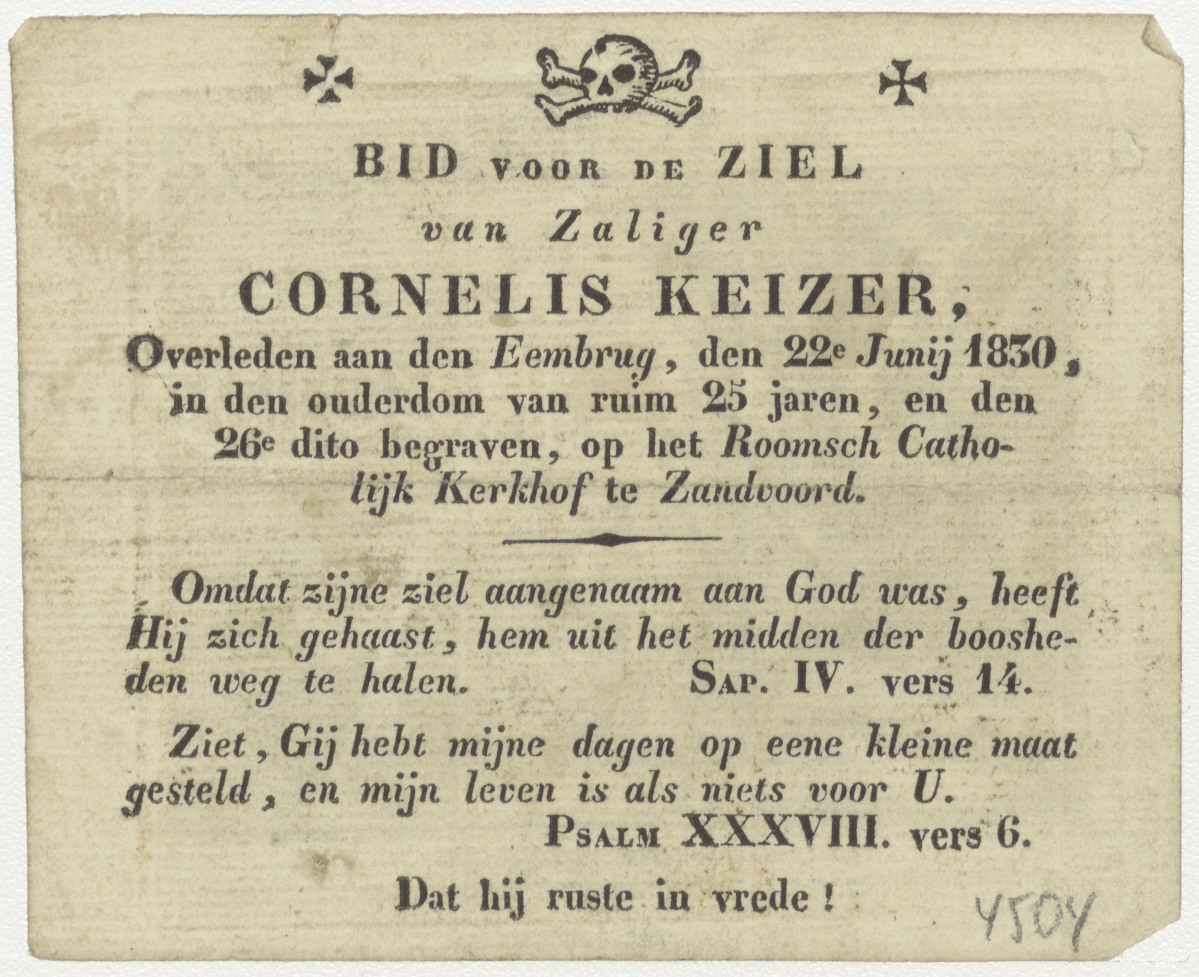 BID VOOR DE ZIEL
van Zaliger
CORNELIS KEIZER,
Overleden aan den Eembrug, den 22e Junij 1830,
in den ouderdom van ruim 25 jaren, en den
26e dito begraven, op het Roomsch Catho-
lijk Kerkhof te Zandvoord.
Omdat zijne ziel aangenaam aan God was, heeft
Hij zich gehaast, hem uit het midden der booshe-
den weg te halen. SAP. IV. vers 14.
Ziet, Gij hebt mijne dagen op eene kleine maat
gesteld, en mijn leven is als niets voor U.
PSALM XXXVIII. vers 6.
Dat hij ruste in vrede!
4504